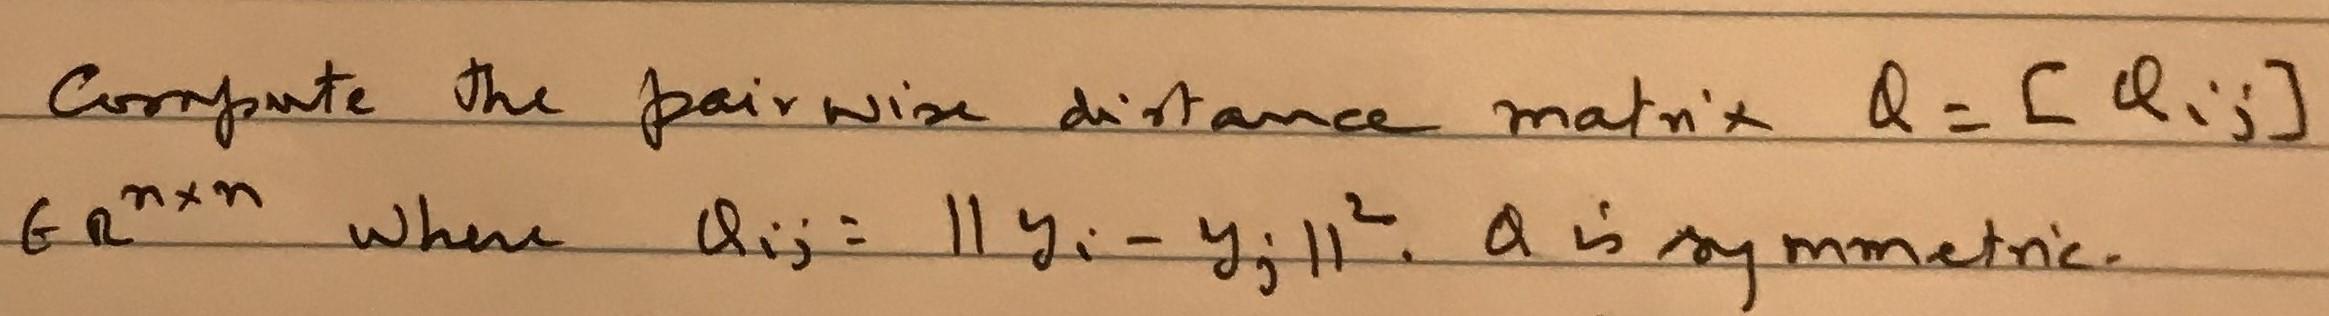 Compute the pairwise distance matrix Q = [Qij]
∈ R^{n×n} where Qij = ||yi - yj||². Q is symmetric.